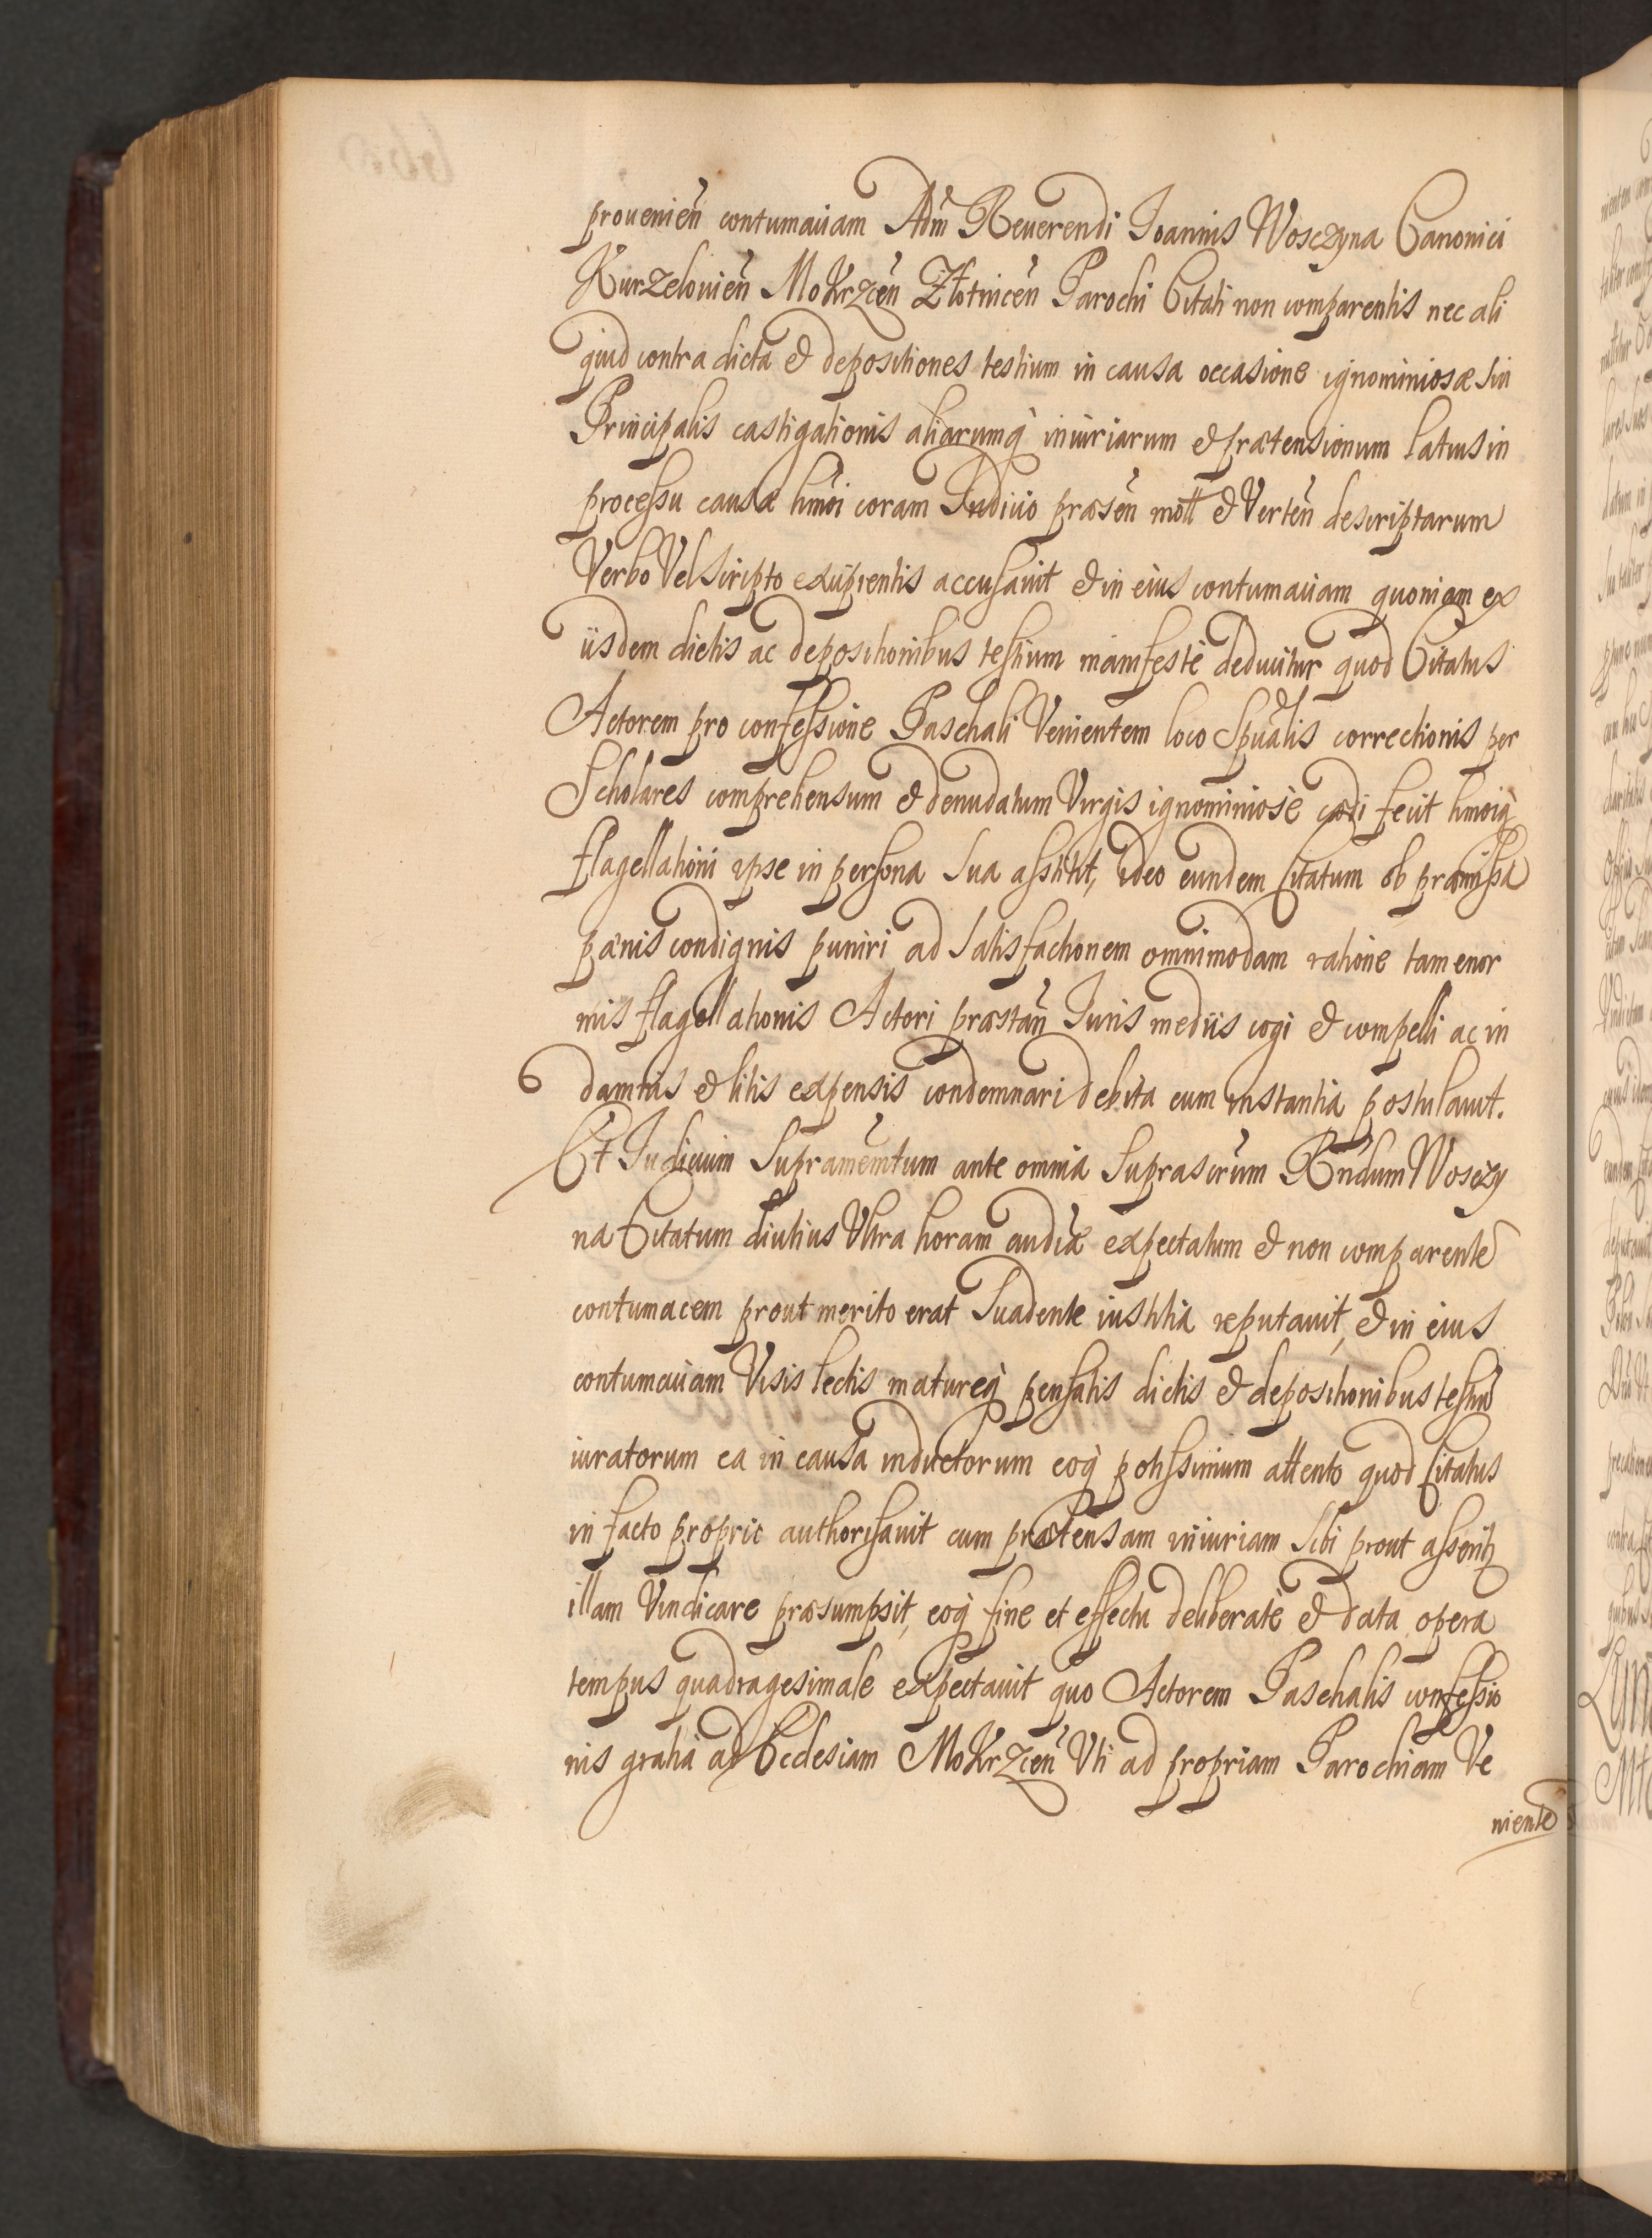 prouenien̄ contumaciam Adm̄ Reuerendi Ioannis Wosczyna Canonici
Kurzelouien̄ Mokrzcen̄ Złotnicen̄ Parochi Citati non comparentis nec ali
quid contra dicta et depositiones testium in causa occasione ignominiosæ sui
Principalis castigationis aliarumq̀ iniuriarum et prætensionum latius in
processu causæ hm̄oi coram Iudicio præsen̄ mot̄ et Verten̄ descriptarum
Verbo Vel Scripto excipientis accusauit et in eius contumaciam quoniam ex
iisdem dictis ac depositionibus testium manifestè deducitur quod Citatus
Actorem pro confessione Paschali Venientem loco Spuālis correctionis per
Scholares comprehensum et denudatum Virgis ignominiosè cædi fecit hmoiq̀
flagellationi ipse in persona sua asstitit, ideo eundem Citatum ob præmissa
pænis condignis puniri ad satisfactionem omnimodam ratione tam enor
mis flagellationis Actori præstan̄ Iuris mediis cogi et compelli ac in
damnis et litis expensis condemnari debita cum instantia postulauit.
Et Iudicium Supramem̄tum ante omnia Suprascr̄um R̄ndum Wosczy
na Citatum diutius Vltra horam audiæ expectatum et non comparente
contumacem prout merito erat Suadente iustitia reputauit, et in eius
contumaciam Visis lectis matureq̀ pensatis dictis et depositionibus testiū
iuratorum ea in causa inductorum eoq̀ potissimum attento quod Citatus
in facto proprio authorisauit cum prætensam iniuriam sibi prout asserit
illam Vindicare præsumpsit, eoq̀ fine et effectu deliberatè et data opera
tempus quadragesimale expectauit quo Actorem Paschalis confessio
nis gratia ad Ecclesiam Mokrzcen̄ Vti ad propriam Parochiam Ve
niente